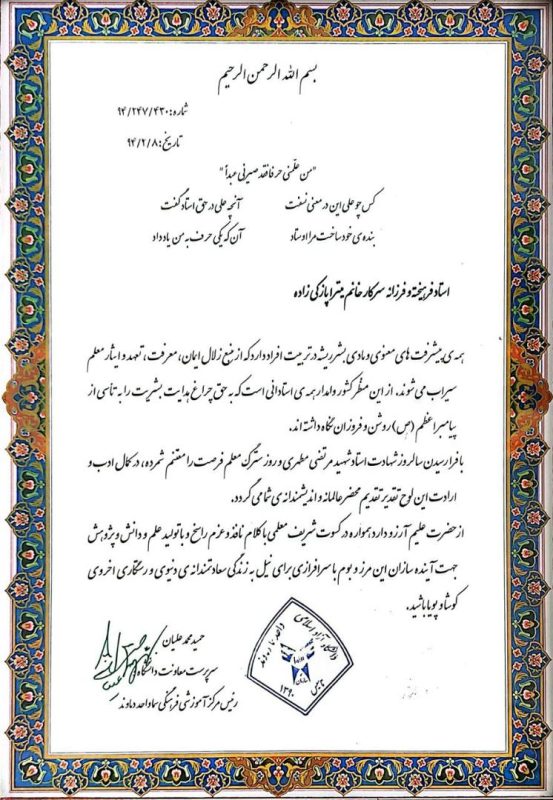 بسم الله الرحمن الرحیم
شماره: ۹۴/۲۴۷/۴۳۰
تاریخ: ۹۴/۲/۸
"من علّمنی حرفا فقد صیرنی عبداً"
کس چو علی این در معنی نسفت آنچه علی در حق استاد گفت
بنده ی خود ساخت مرا اوستاد آن که یکی حرف به من یاد داد
استاد فرهیخته و فرزانه سرکار خانم میترا پازکی زاده
همه ی پیشرفت های معنوی و مادی بشر ریشه در تربیت افراد دارد که از منبع زلال ایمان، معرفت، تعهد و ایثار معلم
سیراب می شوند. از این منظر کشور وامدار همه ی استادانی است که به حق چراغ هدایت بشریت را به تأسی از
پیامبر اعظم (ص) روشن و فروزان نگاه داشته اند.
با فرا رسیدن سالروز شهادت استاد شهید مرتضی مطهری و روز سترگ معلم فرصت را مغتنم شمرده، در کمال ادب و
ارادت این لوح تقدیر تقدیم محضر عالمانه و اندیشمندانه ی شما می گردد.
از حضرت علیم آرزو دارد همواره در کسوت شریف معلمی با کلام نافذ و عزم راسخ و با تولید علم و دانش و پژوهش
جهت آینده سازان این مرز و بوم با سرافرازی برای نیل به زندگی سعادتمندانه ی دنیوی و رستگاری اخروی
کوشا و پویا باشید.
حمید محمد علیان
سرپرست معاونت دانشگاه و
رئیس مرکز آموزشی فرهنگی سما واحد دماوند
دانشگاه آزاد اسلامی
واحد دماوند
سازمان سما
تأسیس ۱۳۹۰